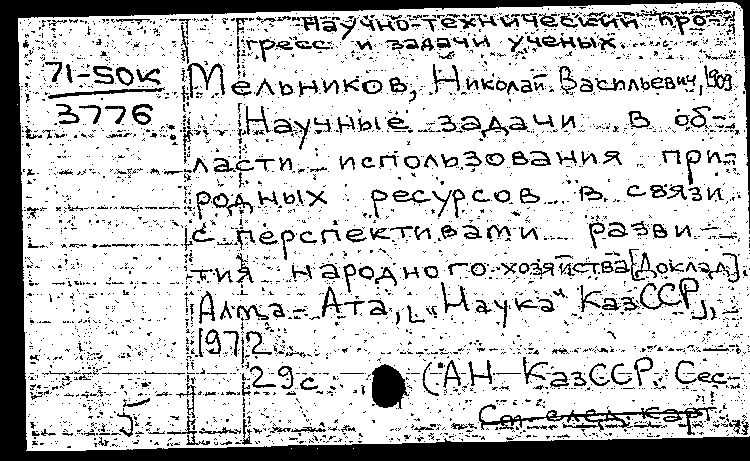 Научно-технический про-
гресс и задачи ученых.
71-50к
3776
Мельников, Николай Васильевич, 1909
Научные задачи в об-
ласти использования при-
родных ресурсов в связи
с перспективами разви-
тия народного хозяйства [Доклад].
Алма-Ата, [„Наука" КазССР],
1972
29 с. (АН КазССР. Сес-
См. след. карт.
5